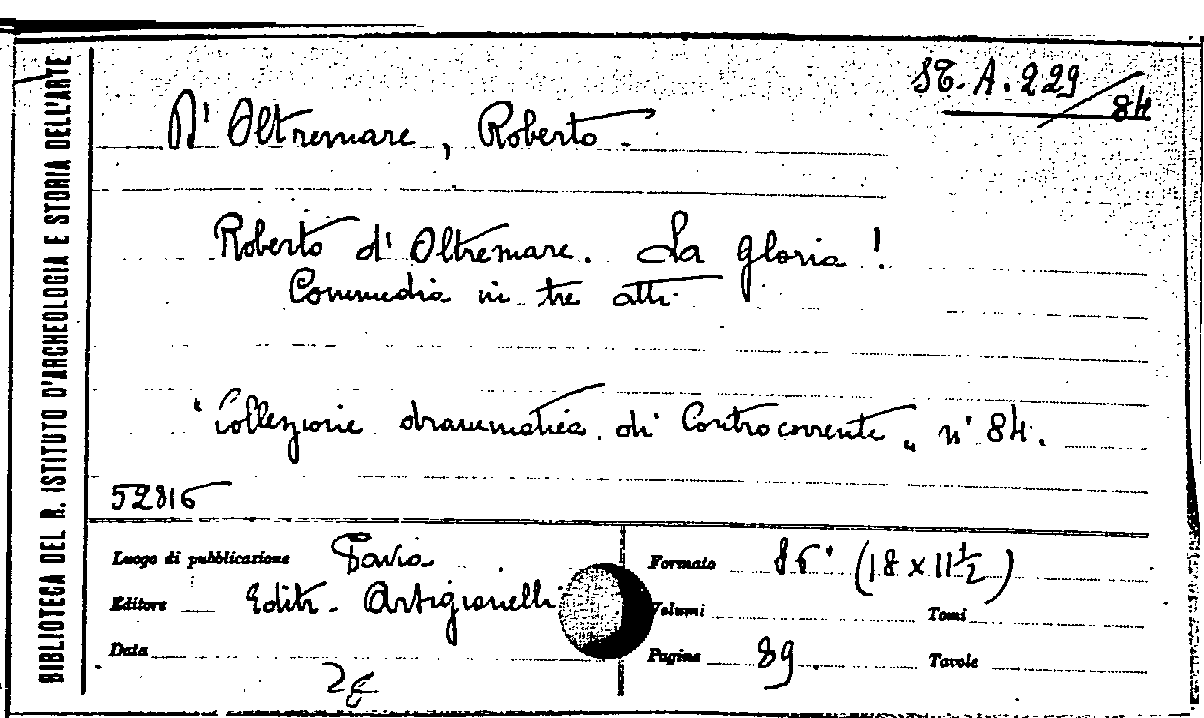 BIBLIOTECA DEL R. ISTITUTO D'ARCHEOLOGIA E STORIA DELL'ARTE
ST. A. 229/84
D'Oltremare, Roberto.
Roberto d'Oltremare. La gloria!
Commedia in tre atti.
"Collezione drammatica di Controcorrente" n° 84.
52816
Luogo di pubblicazione Pavia
Editore Editr. Artigianelli
Data
Formato 8° (18 x 11 1/2)
Volumi Tomi
Pagine 89. Tavole